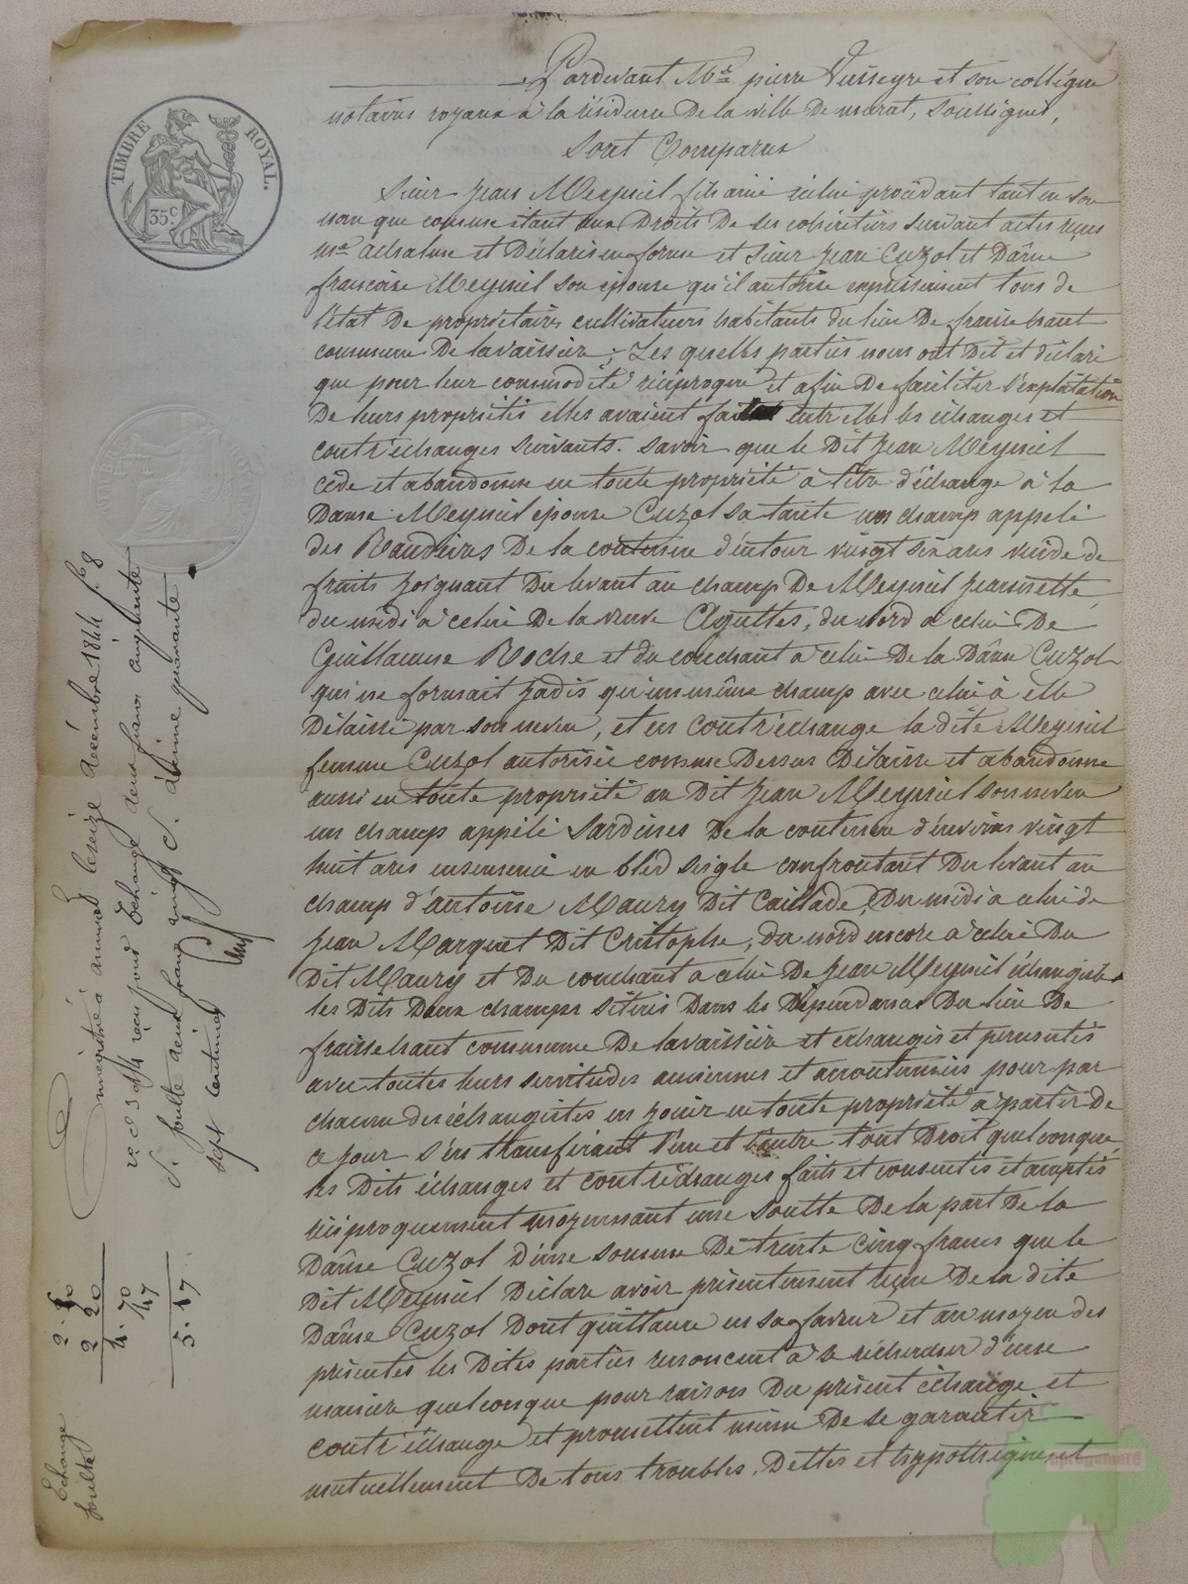 Pardevant Me pierre Vesseyre et son collègue
notaires royaux à la résidence De la ville De murat, soussignés,
Sont Comparus
Sieur Jean Meyniel fils ainé icelui procédant tant en son
nom que comme etant aux Droits De ses cohéritiers suivant actes reçus
me et Déclarés en forme et Sieur Jean Cuzol et Dâme
françoise Meyniel son épouse qu'il autorise expressément tous de
l'état De propriétaires cultivateurs habitants du lieu De fraisse haut
commune De lavaissière; Les quelles parties nous ont Dit et déclaré
que pour leur commodité réciproque et afin De faciliter l'exploitation
De leurs propriétés elles avaient fait entr'elles les échanges et
contr'échanges suivants. savoir que le Dit Jean Meyniel
cède et abandonne en toute propriété à titre d'échange à la
Dame Meyniel épouse Cuzol sa tante un champ appelé
des De la contenue d'entour vingt six ares vuide de
fruits Joignant Du levant au champ De Meyniel Jeannette,
du midi à celui De la veuve Clguttes, du nord à celui De
Guillaume Roche et du couchant à celui De la Dâme Cuzol
qui ne formait Jadis qu'un même champ avec celui à elle
Délaissé par son neveu, et en contr'échange la dite Meyniel
femme Cuzol autorisée comme Dessus Délaisse et abandonne
aussi en toute propriété au Dit Jean Meyniel son neveu
un champ appélé Sardines De la contenue d'environ vingt
huit ares ensemencé en bled seigle confrontant Du levant au
champ d'antoine Maury Dit Caillade, Du midi a celui de
Jean Marquet Dit Cristophe, du nord encore à celui Du
Dit Maury et Du couchant a celui De Jean Meyniel échangiste
les Dits Deux champs situés Dans les Dépendances Du lieu De
fraisse haut commune De lavaissière et échangés et
avec toutes leurs servitudes anciennes et accoutumées pour par
chacun des échangistes en jouir en toute propriété à partir de
ce jour s'en transférant l'un et l'autre tout Droit quelconque
les Dits échanges et contr'échanges faits et consentis et acceptés
réciproquement moyennant une soulte De la part De la
Dâme Cuzol D'une somme De trente cinq francs que le
Dit Meyniel Déclare avoir présentement reçue De la dite
Dâme Cuzol Dont quittance en sa faveur et au moyen des
présentes les Dites parties renoncent à se rechercher d'une
manière quelconque pour raison Du présent échange et
contr'échange et promettent même De se garantir
mutuellement De tous troubles, Dettes et hypothèques
TIMBRE ROYAL.
35c
Enregistré à murat le seize décembre 1844 fo 8
Ro C 3 et 4 reçu pour Echange deux francs cinquante
C. soulte deux francs vingt C. dixième quarante
sept centimes
Echange 2. 50
soulte 2 20
4. 70
47
5. 17